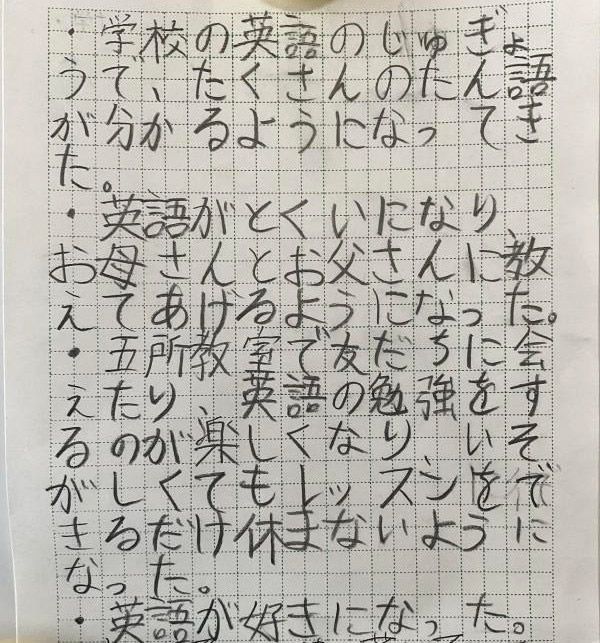 ・学校の英語のじゅぎょ
うで、たくさんのたん語
が分かるようになってき
た。
・英語がとくいになり、
お母さんとお父さんに教
えてあげるようになった。
・五所教室で友だちに会
えたり、英語の勉強をす
るのが楽しくなり、いそ
がしくてもレッスンをで
きるだけ休まないように
なった。
・英語が好きになった。